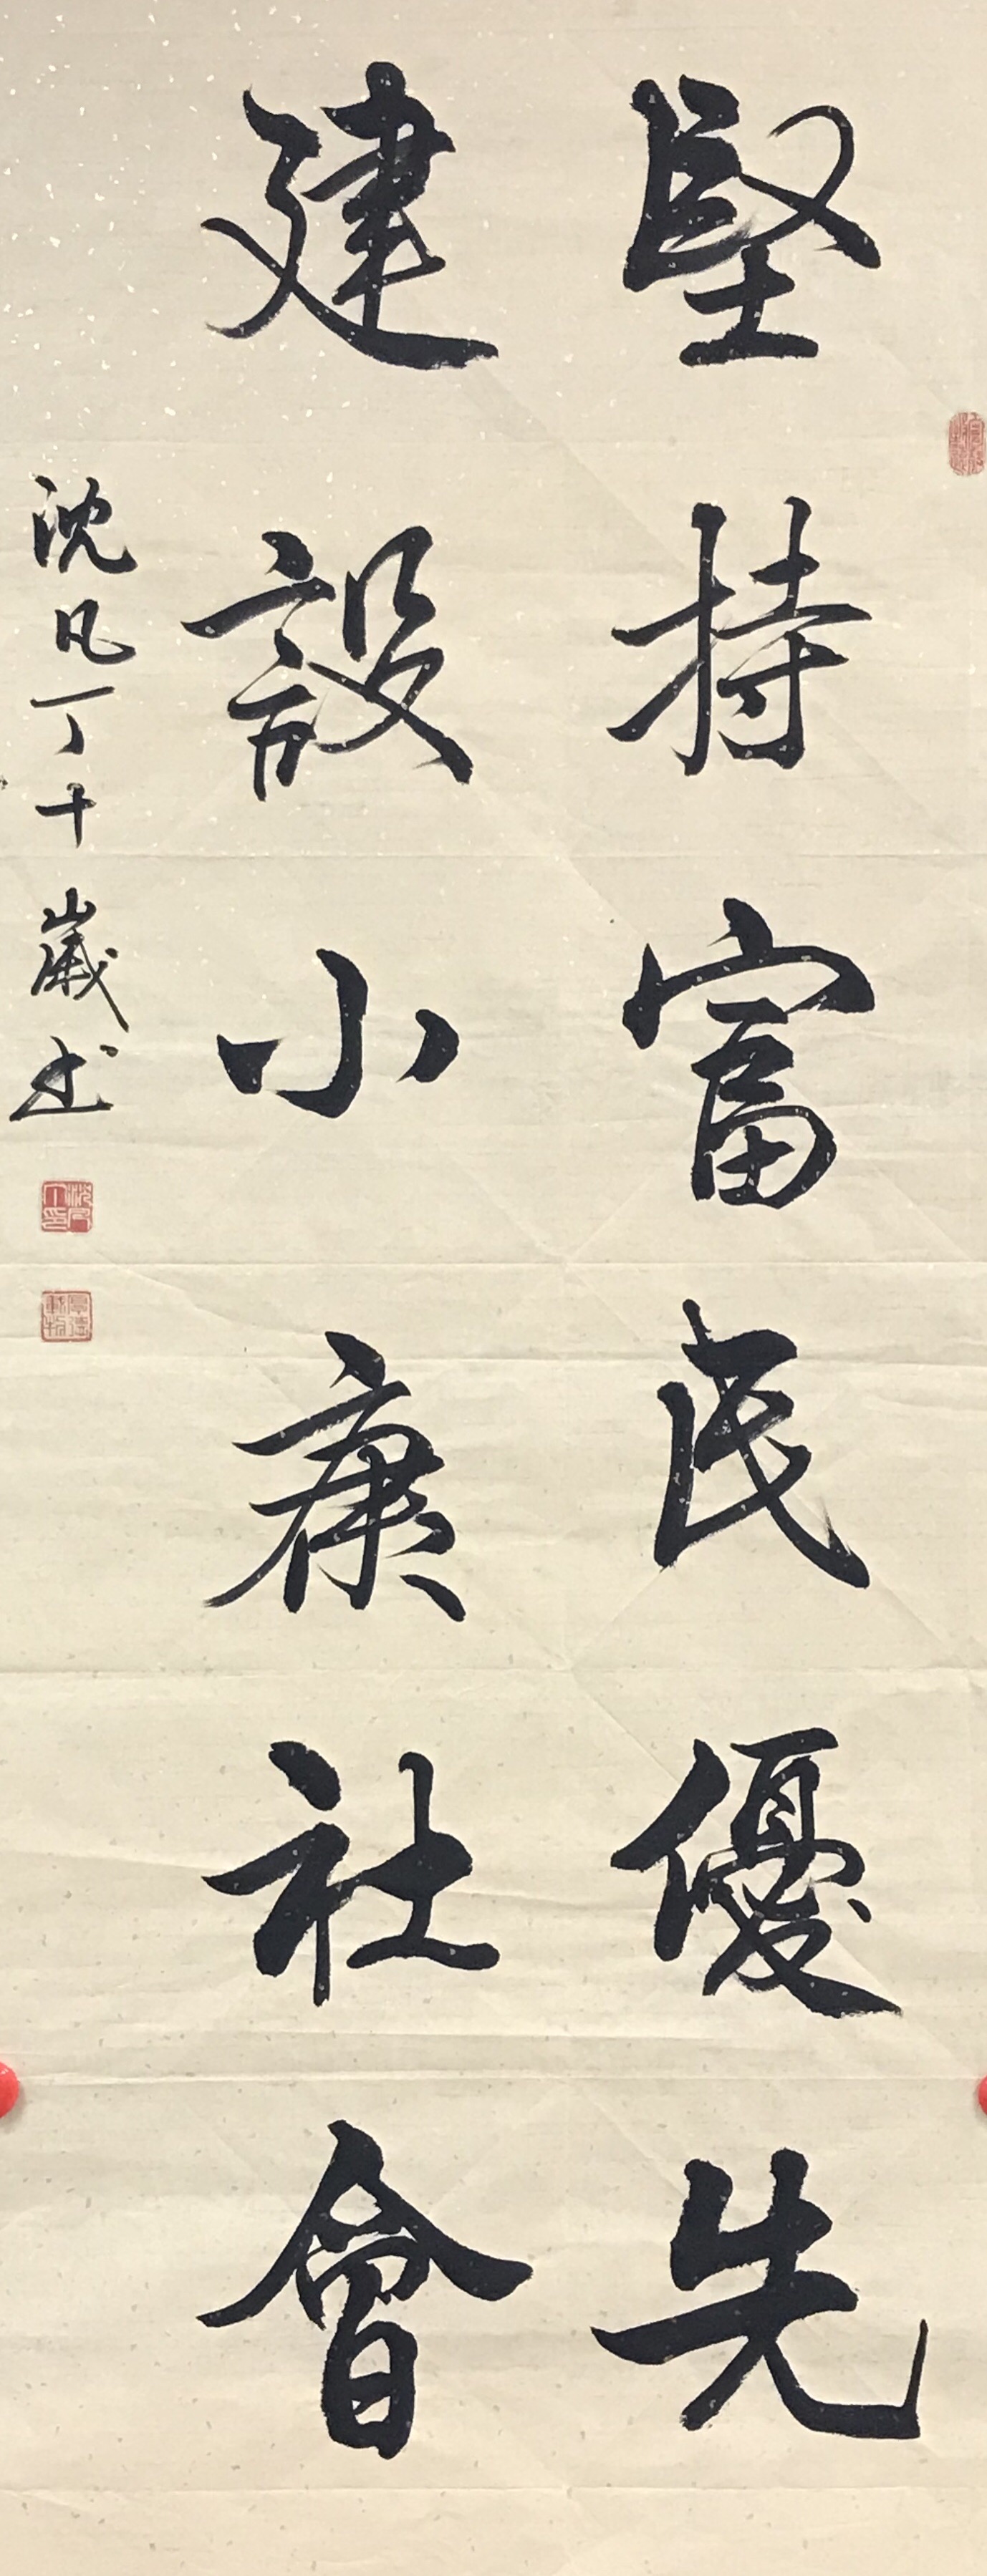 堅持富民優先
建設小康社會
沈凡丁十歲书